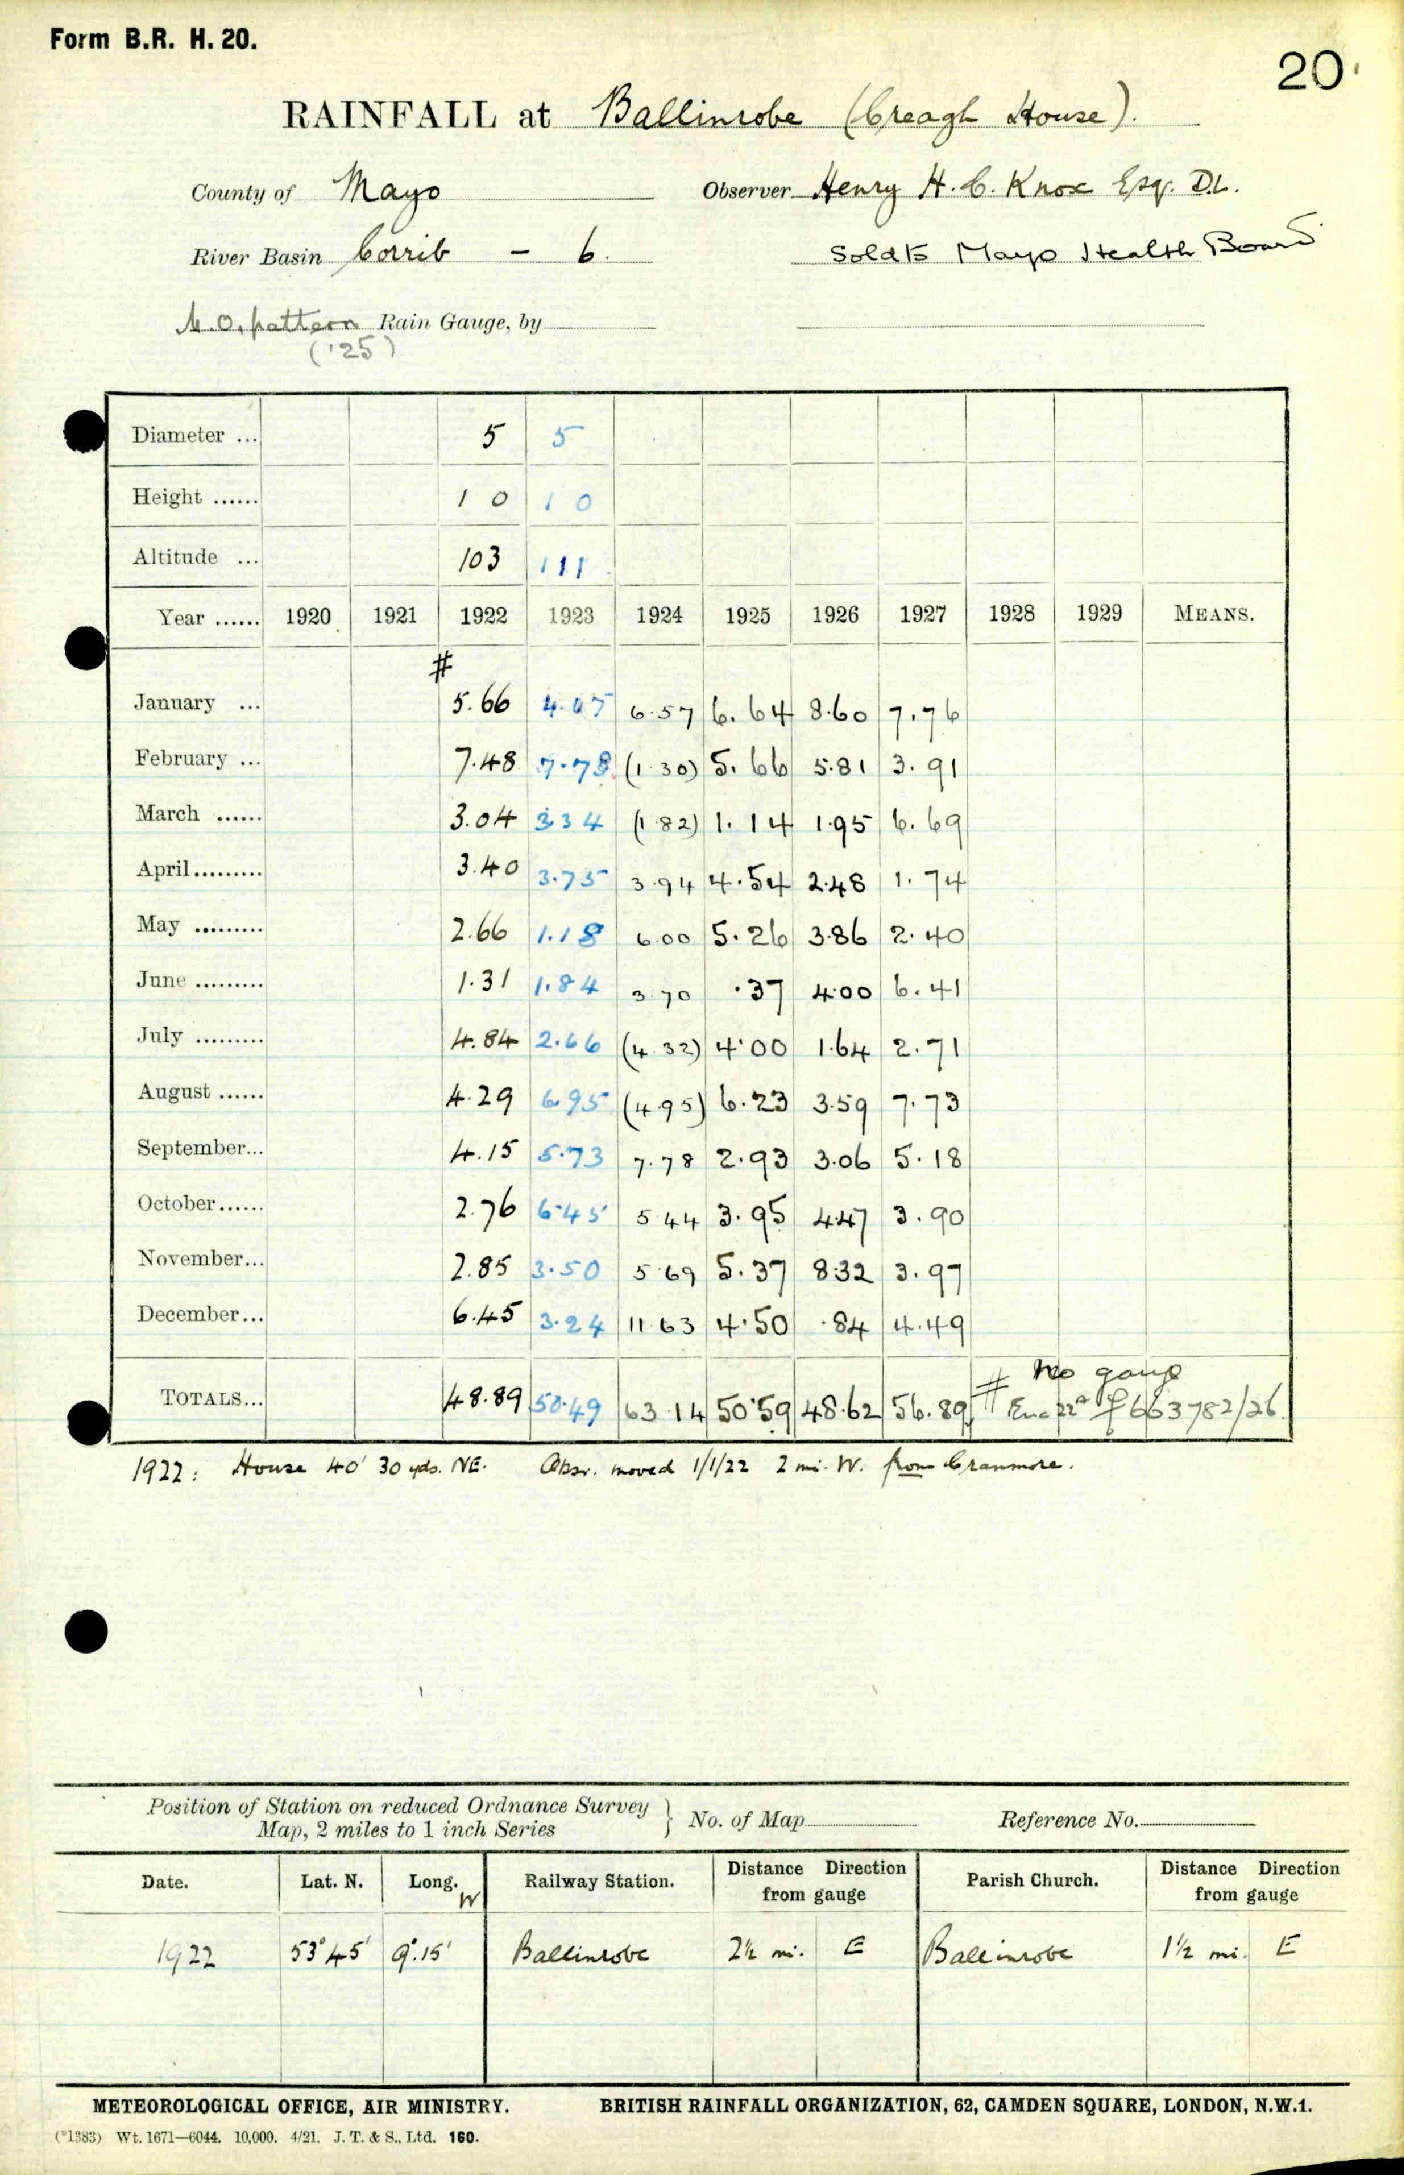 Form B.R. H. 20.
20
RAINFALL at Ballinrobe (Creagh House).
County of Mayo Observer Henry H. C. Knox Esq. D.L.
River Basin Corrib - 6. Sold to Mayo Health Board
M.O. pattern Rain Gauge, by
('25)
Diameter ... 5 5
Height ...... 1 0 1 0
Altitude ... 103 111
Year ...... 1920 1921 1922 1923 1924 1925 1926 1927 1928 1929 MEANS.
#
January ... 5.66 4.07 6.57 6.64 8.60 7.76
February ... 7.48 7.78 (1.30) 5.66 5.81 3.91
March ...... 3.04 3.34 (1.82) 1.14 1.95 6.69
April......... 3.40 3.75 3.94 4.54 2.48 1.74
May ......... 2.66 1.18 6.00 5.26 3.86 2.40
June ......... 1.31 1.84 3.70 .37 4.00 6.41
July ......... 4.84 2.66 (4.32) 4.00 1.64 2.71
August ...... 4.29 6.95 (4.95) 6.23 3.59 7.73
September... 4.15 5.73 7.78 2.93 3.06 5.18
October...... 2.76 6.45 5.44 3.95 4.47 3.90
November... 2.85 3.50 5.69 5.37 8.32 3.97
December... 6.45 3.24 11.63 4.50 .84 4.49
# No gauge
TOTALS... 48.89 50.49 63.14 50.59 48.62 56.89 # 663782/26
1922: House 40' 30 yds. NE. Obsr. moved 1/1/22 2 mi. W. from Cranmore.
Position of Station on reduced Ordnance Survey
Map, 2 miles to 1 inch Series } No. of Map Reference No.
Date. Lat. N. Long. W Railway Station. Distance Direction from gauge Parish Church. Distance Direction from gauge
1922 53°45' 9°.15' Ballinrobe 2½ mi. E Ballinrobe 1½ mi. E
METEOROLOGICAL OFFICE, AIR MINISTRY. BRITISH RAINFALL ORGANIZATION, 62, CAMDEN SQUARE, LONDON, N.W.1.
(*1383) Wt. 1671—6044. 10,000. 4/21. J. T. & S., Ltd. 160.